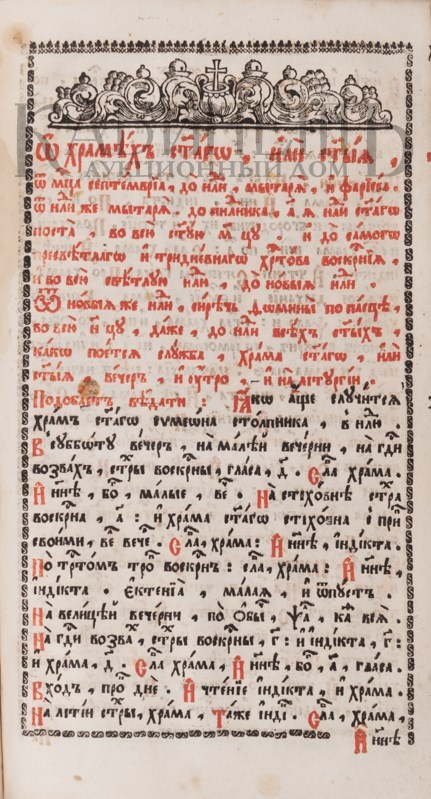 Ѿ храмѣ́хъ ст҃а́гѡ, и҆лѝ ст҃ы́ѧ,
ѿ мц҃а септе́мврїа, до нл҃и, мытарѧ̀, и҆ фарїсе́а.
ѿ нл҃и же мытарѧ̀. до
поста̀ во всю̀ и҆ до самогѡ
пресвѣ́тлагѡ и҆ тридне́внагѡ хрⷭ҇то́ва воскрⷭ҇нїѧ,
и҆ во всю̀ свѣ́тлꙋю нл҃ю, до но́выѧ нл҃и.
Ѿ но́выѧ же, нл҃и, си́рѣчь ѳомины̀ по па́сцѣ,
во всю̀ н҃цꙋ, да́же, до нл҃и всѣ́хъ ст҃ы́хъ,
ка́кѡ пое́тсѧ слꙋ́жба, хра́ма ст҃а́гѡ, и҆лѝ
ст҃ы́ѧ ве́черъ, и҆ ᲂу҆́тро, и҆ на літꙋргі́и.
Подоба́етъ вѣ́дати: Ꙗ҆́кѡ а҆́ще слꙋчи́тсѧ
хра́мъ ст҃а́гѡ сѷмеѡ́на сто́лпника, в нл҃ю.
В сꙋббѡ́тꙋ ве́черъ, на ма́лѣй вече́рни, на гдⷭ҇и
воззва́хъ, стⷯры воскрⷭ҇ны, гла́са, д҃. Сла́, хра́ма.
И҆ ны́нѣ, бо, ма́лыѧ, ве. На стїхо́внѣ стⷯра
воскрⷭ҇на, а҃: и҆ хра́ма ст҃а́гѡ стїхо́вна с при
свои́ми, ве вече. Сла́, хра́ма: И҆ ны́нѣ, і҆нді́кта.
По трⷭ҇то́мъ тро воскрⷭ҇нъ: сла́, хра́ма: И҆ ны́нѣ,
і҆нді́кта. Є҆ктенїѧ̀, ма́лаѧ, и҆ ѿпꙋ́стъ.
На вели́цѣй вече́рни, по ѡ҆бы́, ѱа, ка всѧ̀.
На гдⷭ҇и воззва, стⷯры воскрⷭ҇ны, г҃: и҆ і҆ндікта, г҃:
и҆ хра́ма, д҃. Сла́ хра́ма, И҆ ны́нѣ, бо, а҃, гла́са.
Вхо́дъ, про дне. И҆ чте́нїе і҆ндікта, и҆ хра́ма.
На літїи стⷯры, хра́ма, Та́же і҆нді. Сла́, хра́ма,
И҆ ны́нѣ
АУКЦИОННЫЙ ДОМ